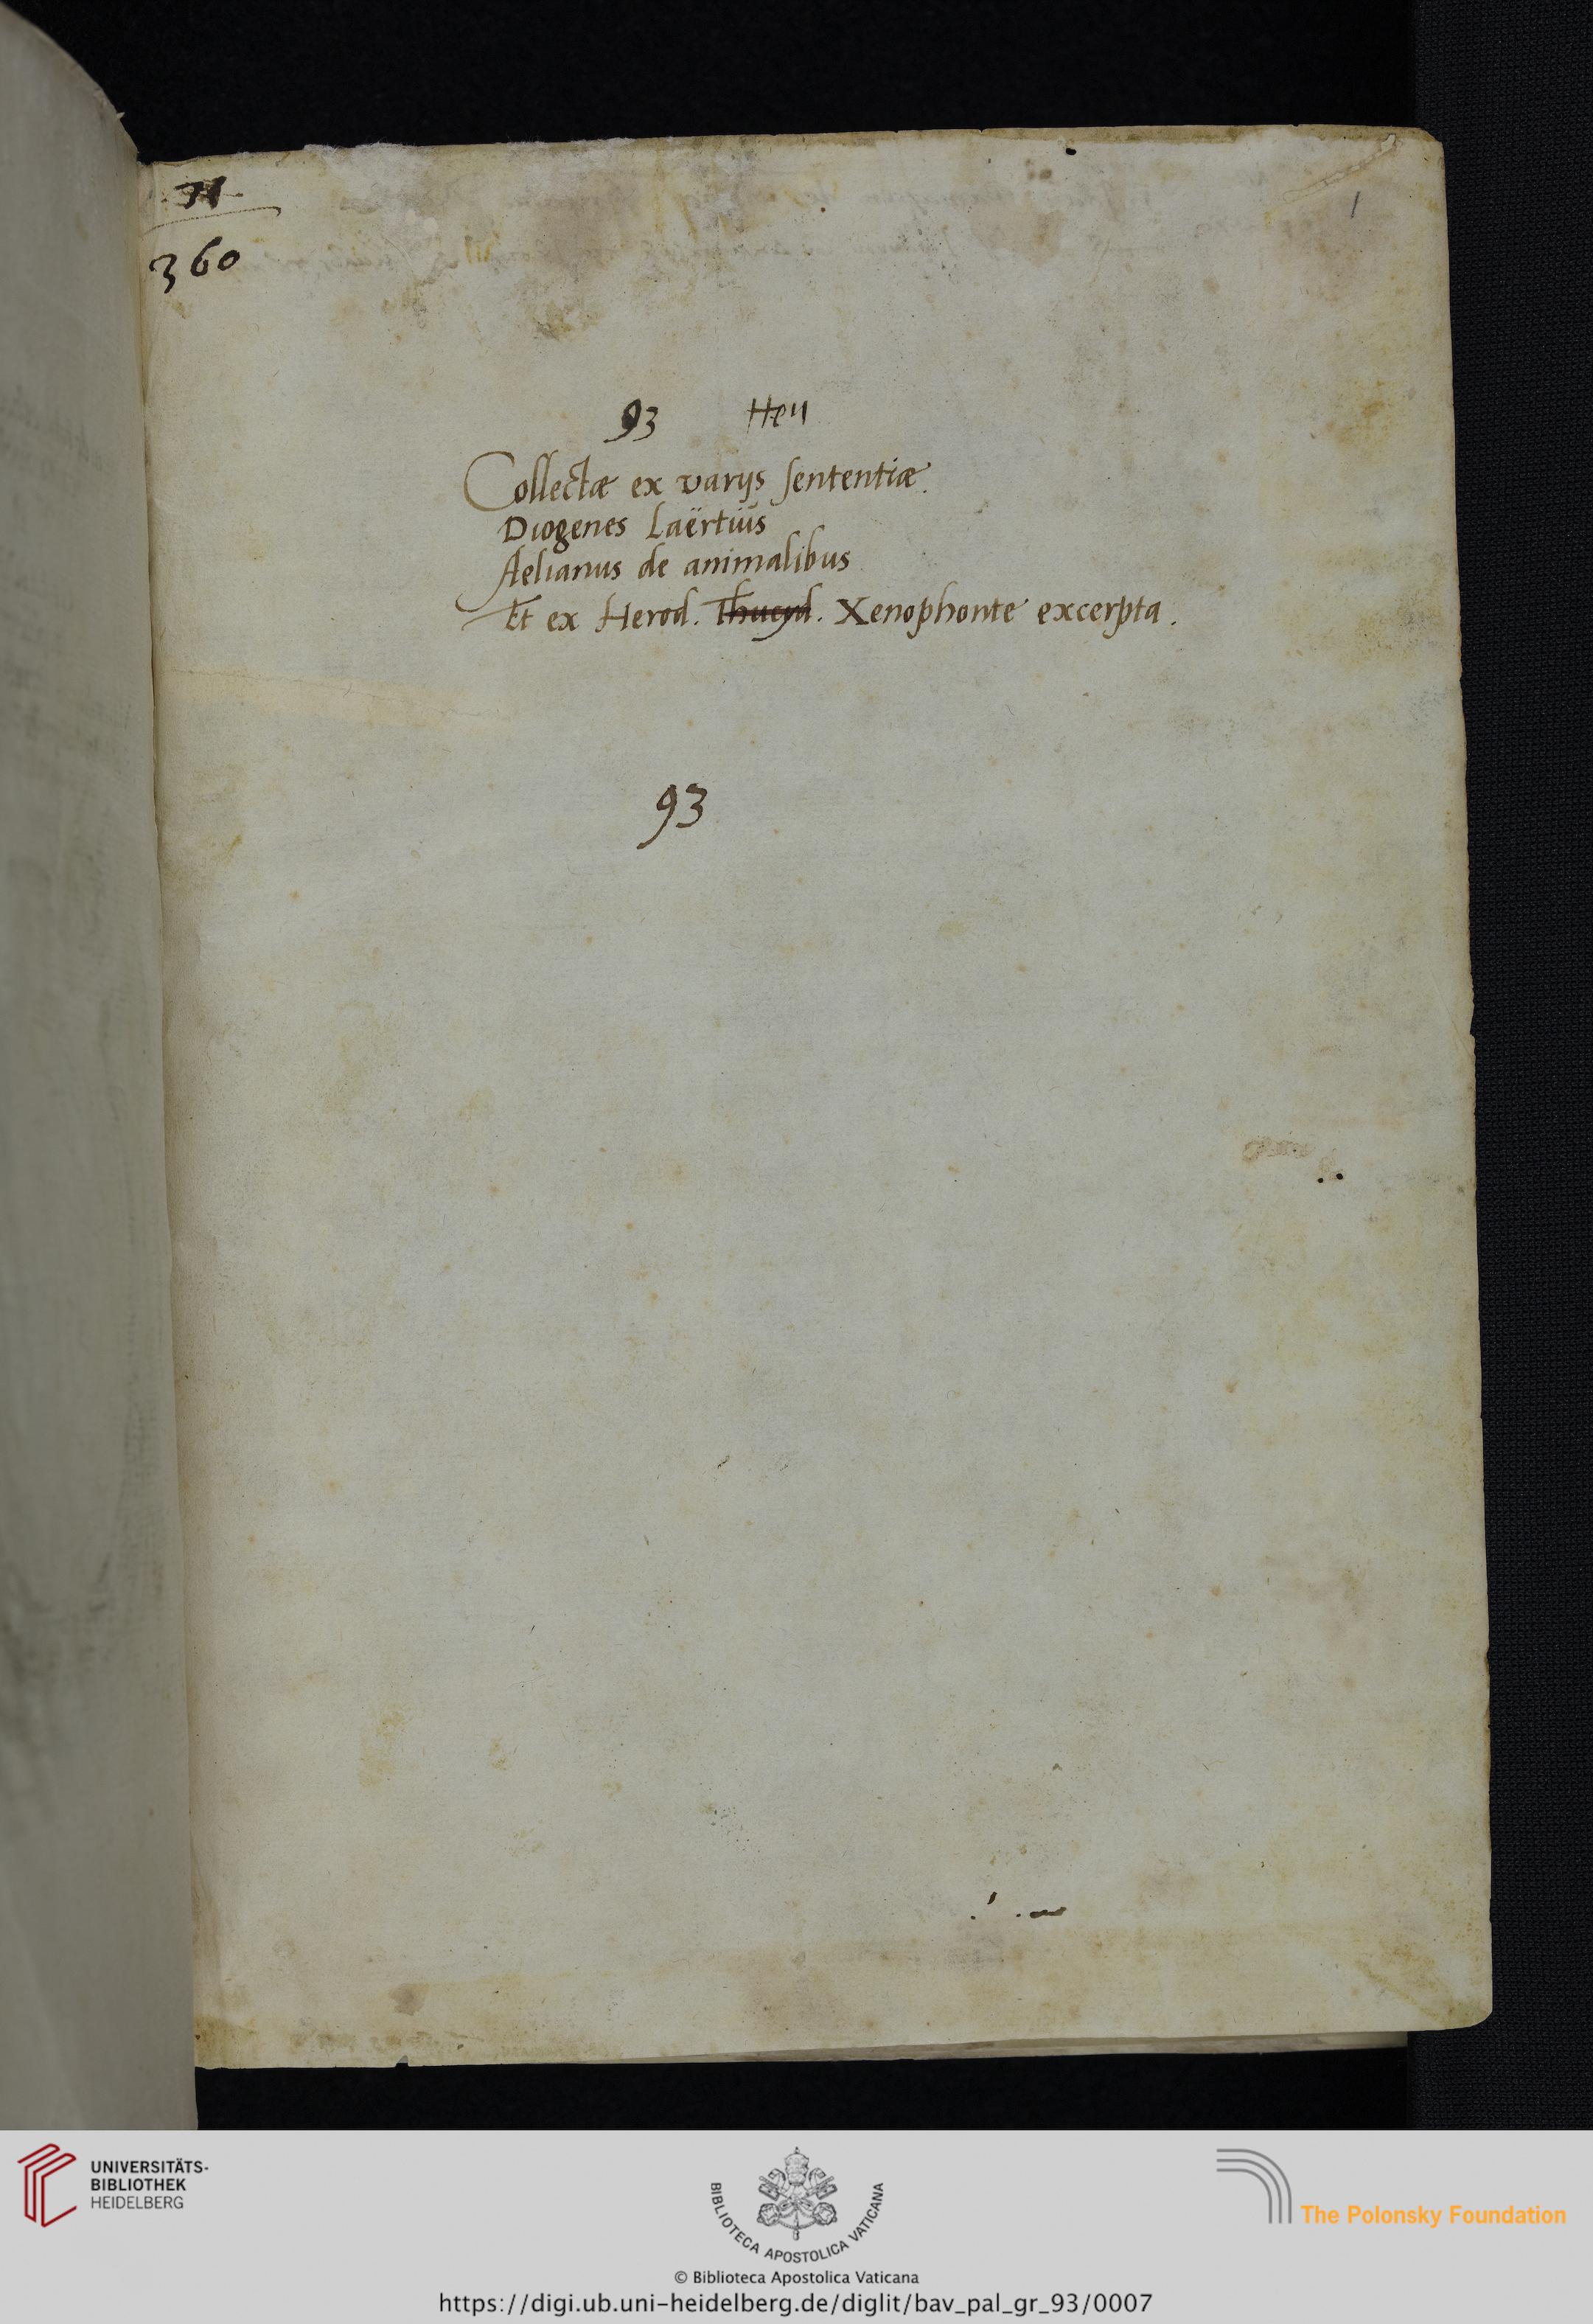 71
360
1
93 Heu
Collectæ ex varijs sententiæ.
Diogenes Laërtius
Aelianus de animalibus
Et ex Herod. Thucyd. Xenophonte excerpta.
93
UNIVERSITÄTS-
BIBLIOTHEK
HEIDELBERG
BIBLIOTECA APOSTOLICA VATICANA
The Polonsky Foundation
© Biblioteca Apostolica Vaticana
https://digi.ub.uni-heidelberg.de/diglit/bav_pal_gr_93/0007